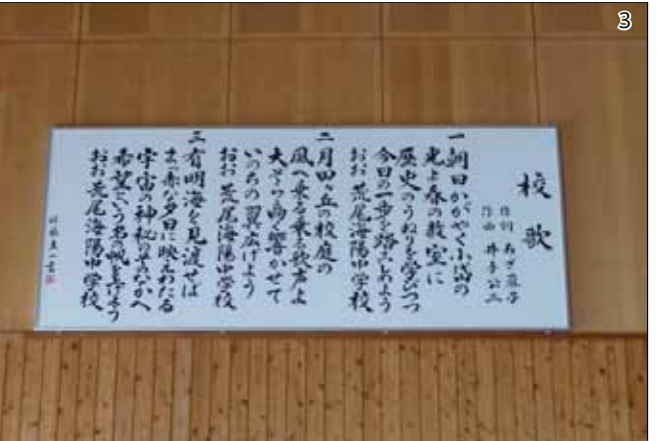 3
校歌
作詞 あざ蓉子
作曲 井手公二
一 朝日かがやく小岱の
光よ春の教室に
歴史のうねりを学びつつ
今日の一歩を踏みしめよう
おお 荒尾海陽中学校
二 月田ヶ丘の校庭の
風へ乗る乗る歌声よ
大空高く響かせて
いのちの翼広げよう
おお 荒尾海陽中学校
三 有明海を見渡せば
まっ赤な夕日に映えわたる
宇宙の神秘のまなかへ
希望という名の帆を上げよう
おお 荒尾海陽中学校